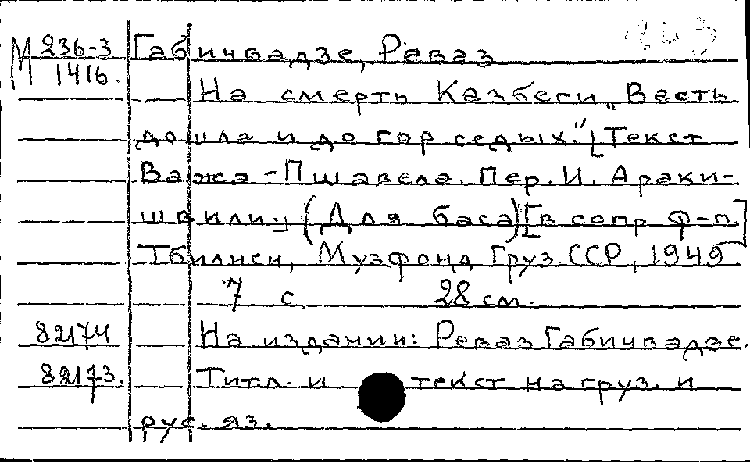 М 236-3 Габичвадзе, Реваз
1416.
На смерть Казбеги „Весть
дошла и до гор седых." [Текст
Важа-Пшавела. Пер. И. Араки-
швили] (Для баса) [в сопр. ф-п.]
Тбилиси, Музфонд Груз.ССР, 1949
7 с. 28 см.
82174 На издании: Реваз Габичвадзе.
82173. Титл. и текст на груз. и
рус. яз.